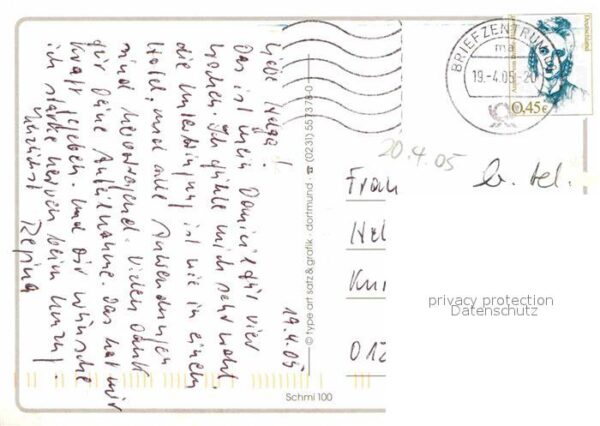 Liebe Helga!
Das ist mein Domizil für vier
Wochen. Ich fühle mich sehr wohl
die Unterbringung ist wie in einem
Hotel, und alle Anwendungen
sind hervorragend. Vielen Dank
für Deine Anteilnahme. Das hat mir
Kraft gegeben. Und Dir wünsche
ich starke Nerven beim Umzug.
Herzlichst
Regina
19.4.05
© type art satz & grafik · dortmund · ☎ (0231) 557373-0
Schmi 100
BRIEFZENTRUM
ma
19.-4.05-20
Deutschland
0,45€
20.4.05
Frau
b. tel.
Hel
Kur
012
privacy protection
Datenschutz